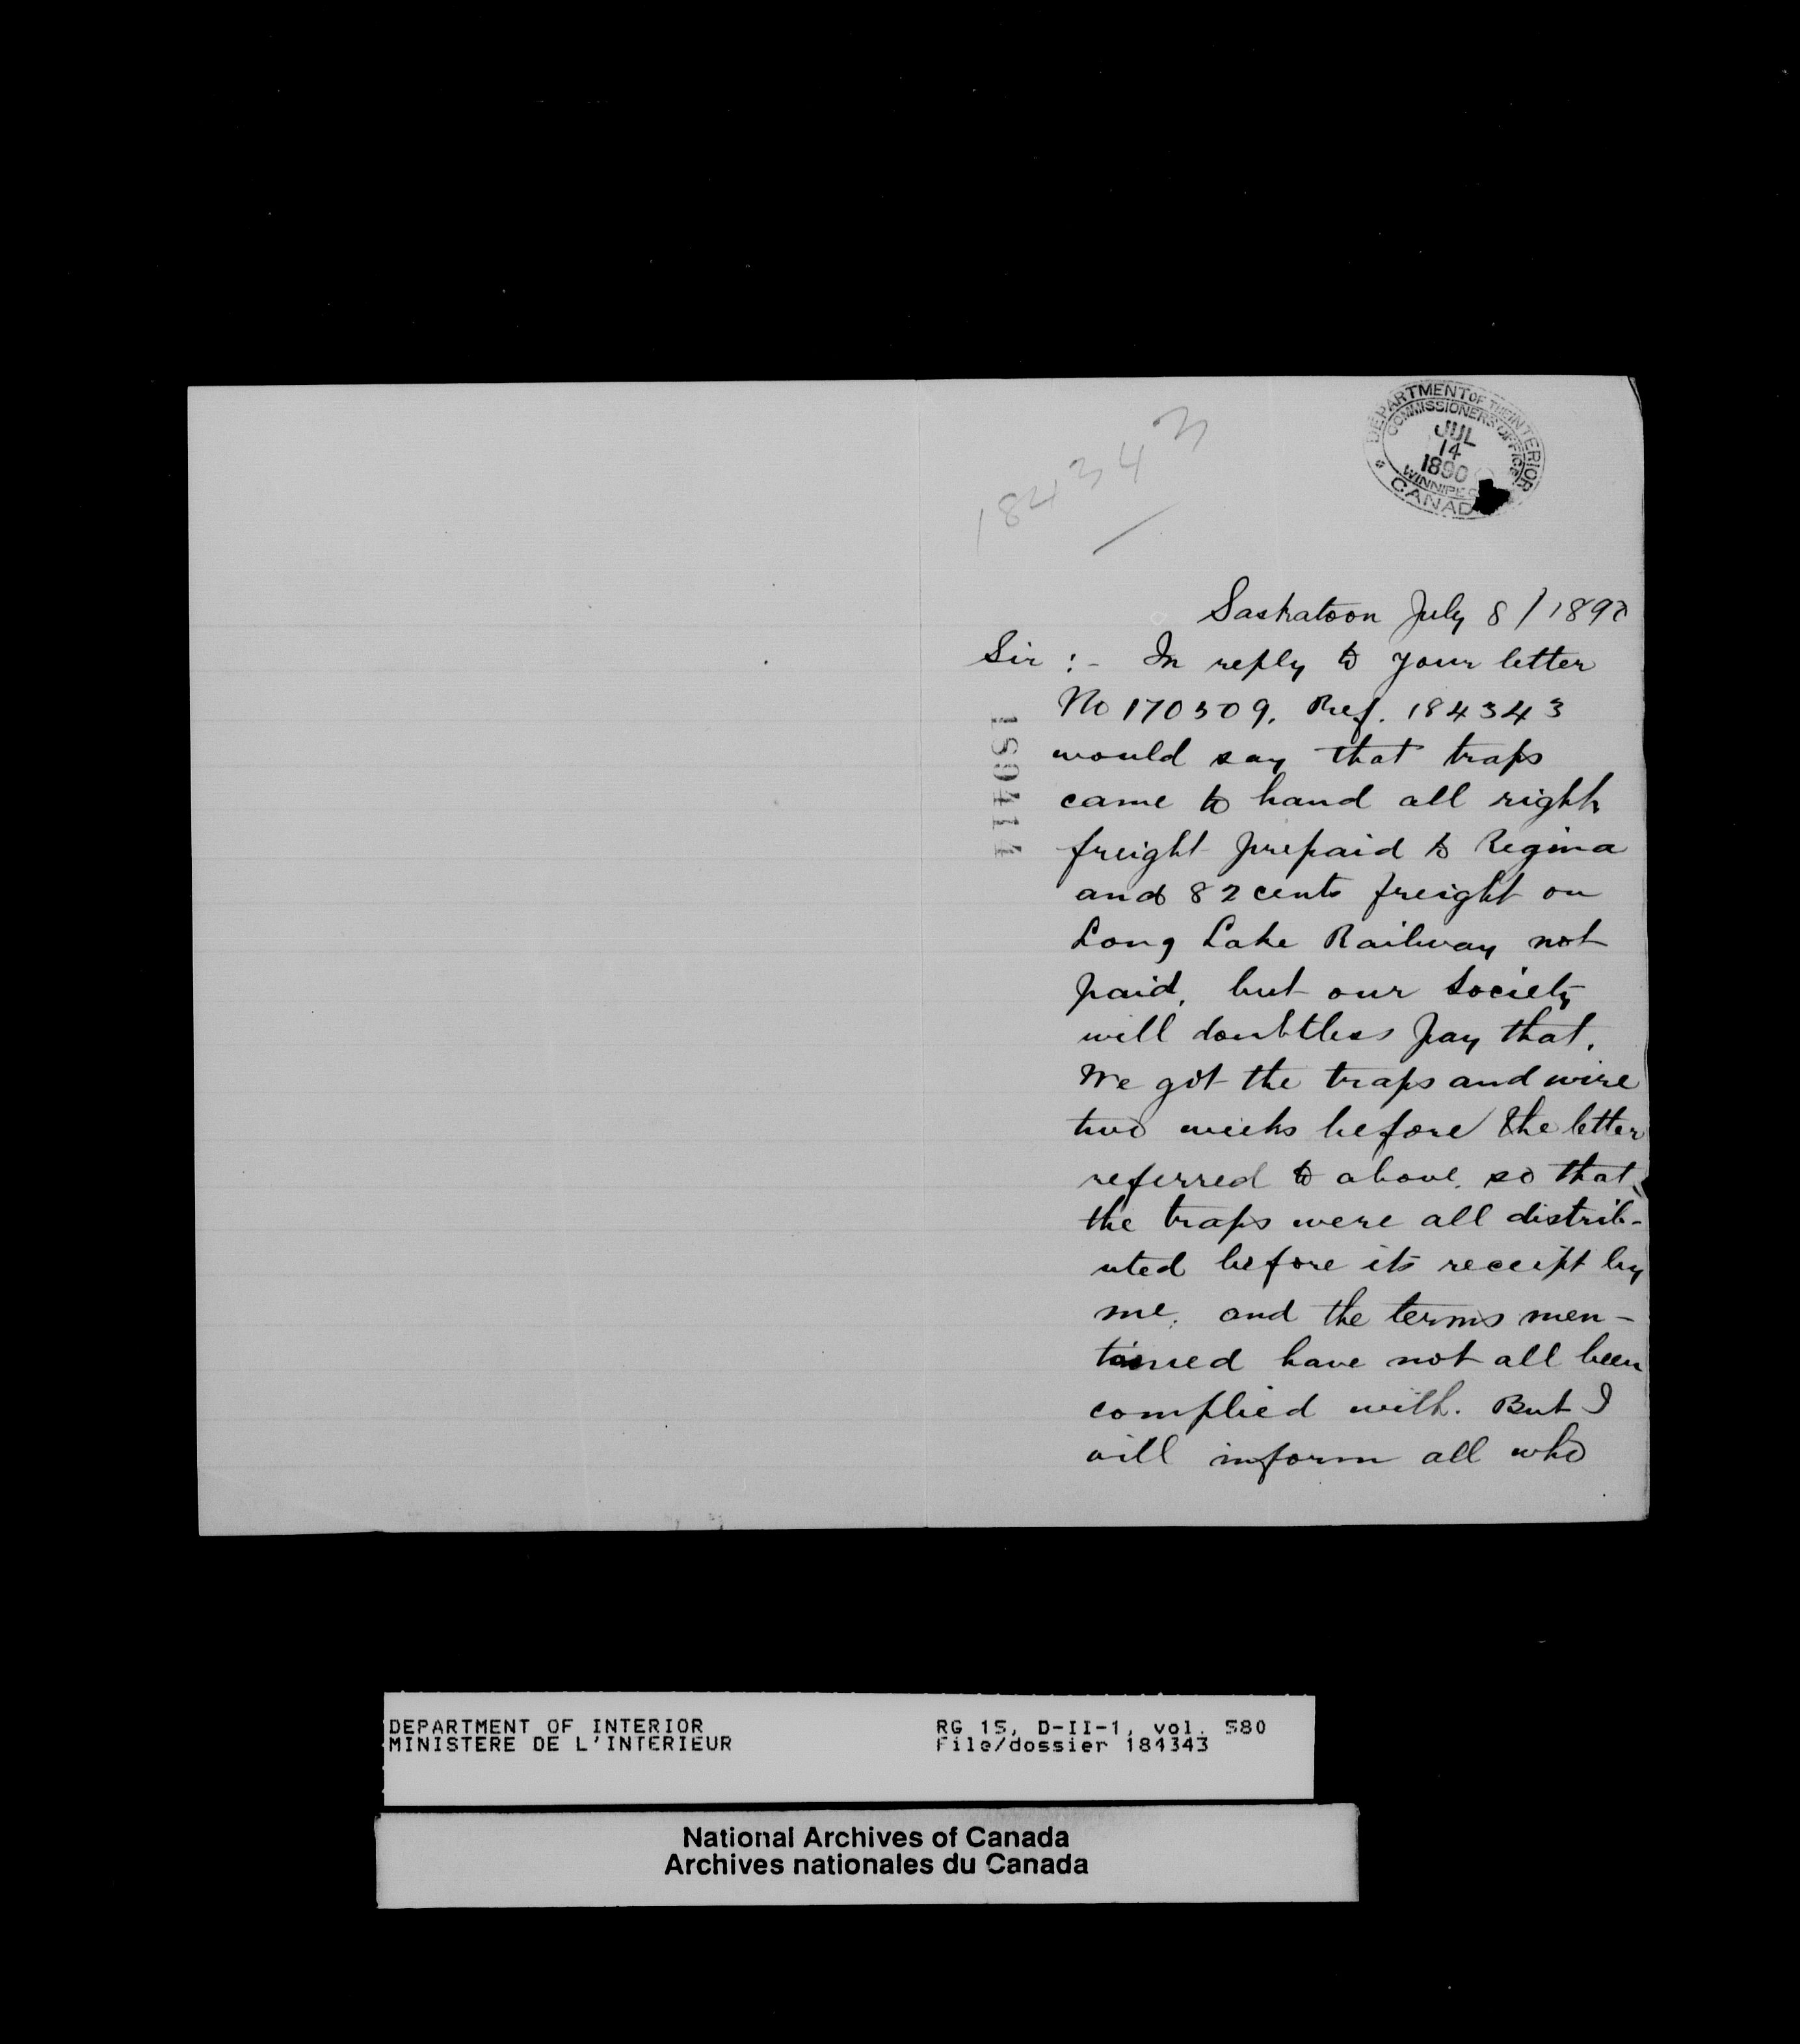 184343
DEPARTMENT OF THE INTERIOR
COMMISSIONERS OFFICE
JUL
14
1890
WINNIPEG
CANADA
Saskatoon July 8/1890
Sir :- In reply to your letter
No 170509. Ref. 184343
would say that traps
came to hand all right
freight prepaid to Regina
and 82 cents freight on
Long Lake Railway not
paid, but our Society
will doubtless pay that.
We got the traps and wire
two weeks before the letter
referred to above, so that
the traps were all distrib-
uted before its receipt by
me, and the terms men-
tioned have not all been
complied with. But I
will inform all who
189414
DEPARTMENT OF INTERIOR
MINISTERE DE L'INTERIEUR
RG 15, D-II-1, vol. 580
File/dossier 184343
National Archives of Canada
Archives nationales du Canada